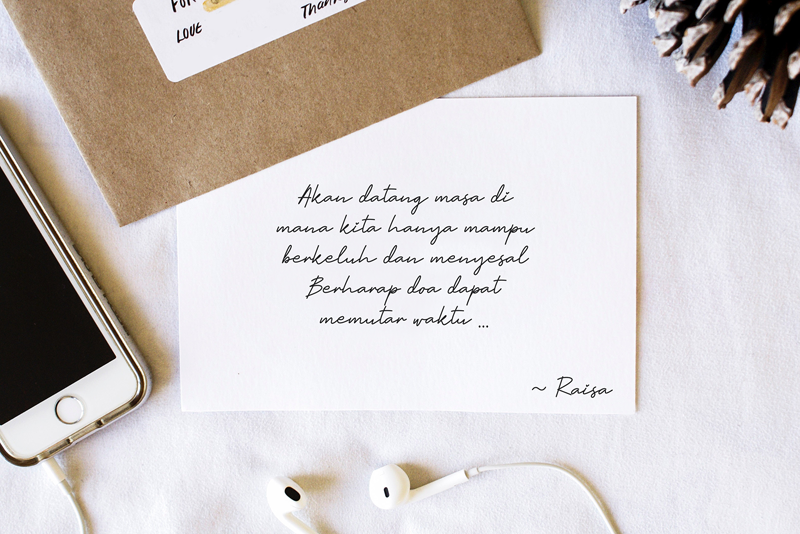 LOVE
Akan datang masa di
mana kita hanya mampu
berkeluh dan menyesal
Berharap doa dapat
memutar waktu ...
~ Raisa